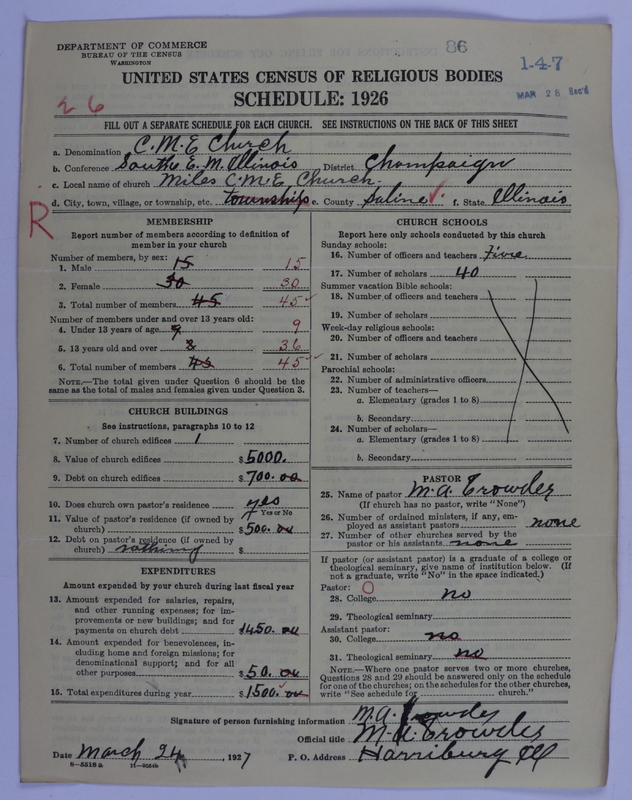 DEPARTMENT OF COMMERCE
BUREAU OF THE CENSUS
WASHINGTON
86
1-4-7
MAR 28 Rec'd
UNITED STATES CENSUS OF RELIGIOUS BODIES
SCHEDULE: 1926
FILL OUT A SEPARATE SCHEDULE FOR EACH CHURCH. SEE INSTRUCTIONS ON THE BACK OF THIS SHEET
a. Denomination C.M.E Church
b. Conference South E. M. Illinois District Champaign
c. Local name of church Miles C.M.E Church.
d. City, town, village, or township, etc. township e. County Saline f. State Illinois
R
MEMBERSHIP
Report number of members according to definition of
member in your church
Number of members, by sex:
1. Male 15 15
2. Female 30 30
3. Total number of members 45 45
Number of members under and over 13 years old:
4. Under 13 years of age 9 9
5. 13 years old and over 36
6. Total number of members 45 45
NOTE.—The total given under Question 6 should be
same as the total of males and females given under Question 3.
CHURCH BUILDINGS
See instructions, paragraphs 10 to 12
7. Number of church edifices 1
8. Value of church edifices $5000.
9. Debt on church edifices $700.00
10. Does church own pastor's residence yes
Yes or No
11. Value of pastor's residence (if owned by
church) $500.00
12. Debt on pastor's residence (if owned by
church) nothing $
EXPENDITURES
Amount expended by your church during last fiscal year
13. Amount expended for salaries, repairs,
and other running expenses; for im-
provements or new buildings; and for
payments on church debt $1450.00
14. Amount expended for benevolences, in-
cluding home and foreign missions; for
denominational support; and for all
other purposes $50.00
15. Total expenditures during year $1500.00
CHURCH SCHOOLS
Report here only schools conducted by this church
Sunday schools:
16. Number of officers and teachers five
17. Number of scholars 40
Summer vacation Bible schools:
18. Number of officers and teachers
19. Number of scholars
Week-day religious schools:
20. Number of officers and teachers
21. Number of scholars
Parochial schools:
22. Number of administrative officers
23. Number of teachers—
a. Elementary (grades 1 to 8)
b. Secondary
24. Number of scholars—
a. Elementary (grades 1 to 8)
b. Secondary
PASTOR
25. Name of pastor M.A. Crowder
(If church has no pastor, write "None")
26. Number of ordained ministers, if any, em-
ployed as assistant pastors none
27. Number of other churches served by the
pastor or his assistants none
If pastor (or assistant pastor) is a graduate of a college or
theological seminary, give name of institution below. (If
not a graduate, write "No" in the space indicated.)
Pastor: O
28. College no
29. Theological seminary
Assistant pastor:
30. College no
31. Theological seminary no
NOTE.—Where one pastor serves two or more churches,
Questions 28 and 29 should be answered only on the schedule
for one of the churches; on the schedules for the other churches,
write "See schedule for church."
Signature of person furnishing information M.A. Crowder
Official title M.A. Crowder
Date March 24, 1927 P. O. Address Harrisburg Ill
8—5518a 11—9554b